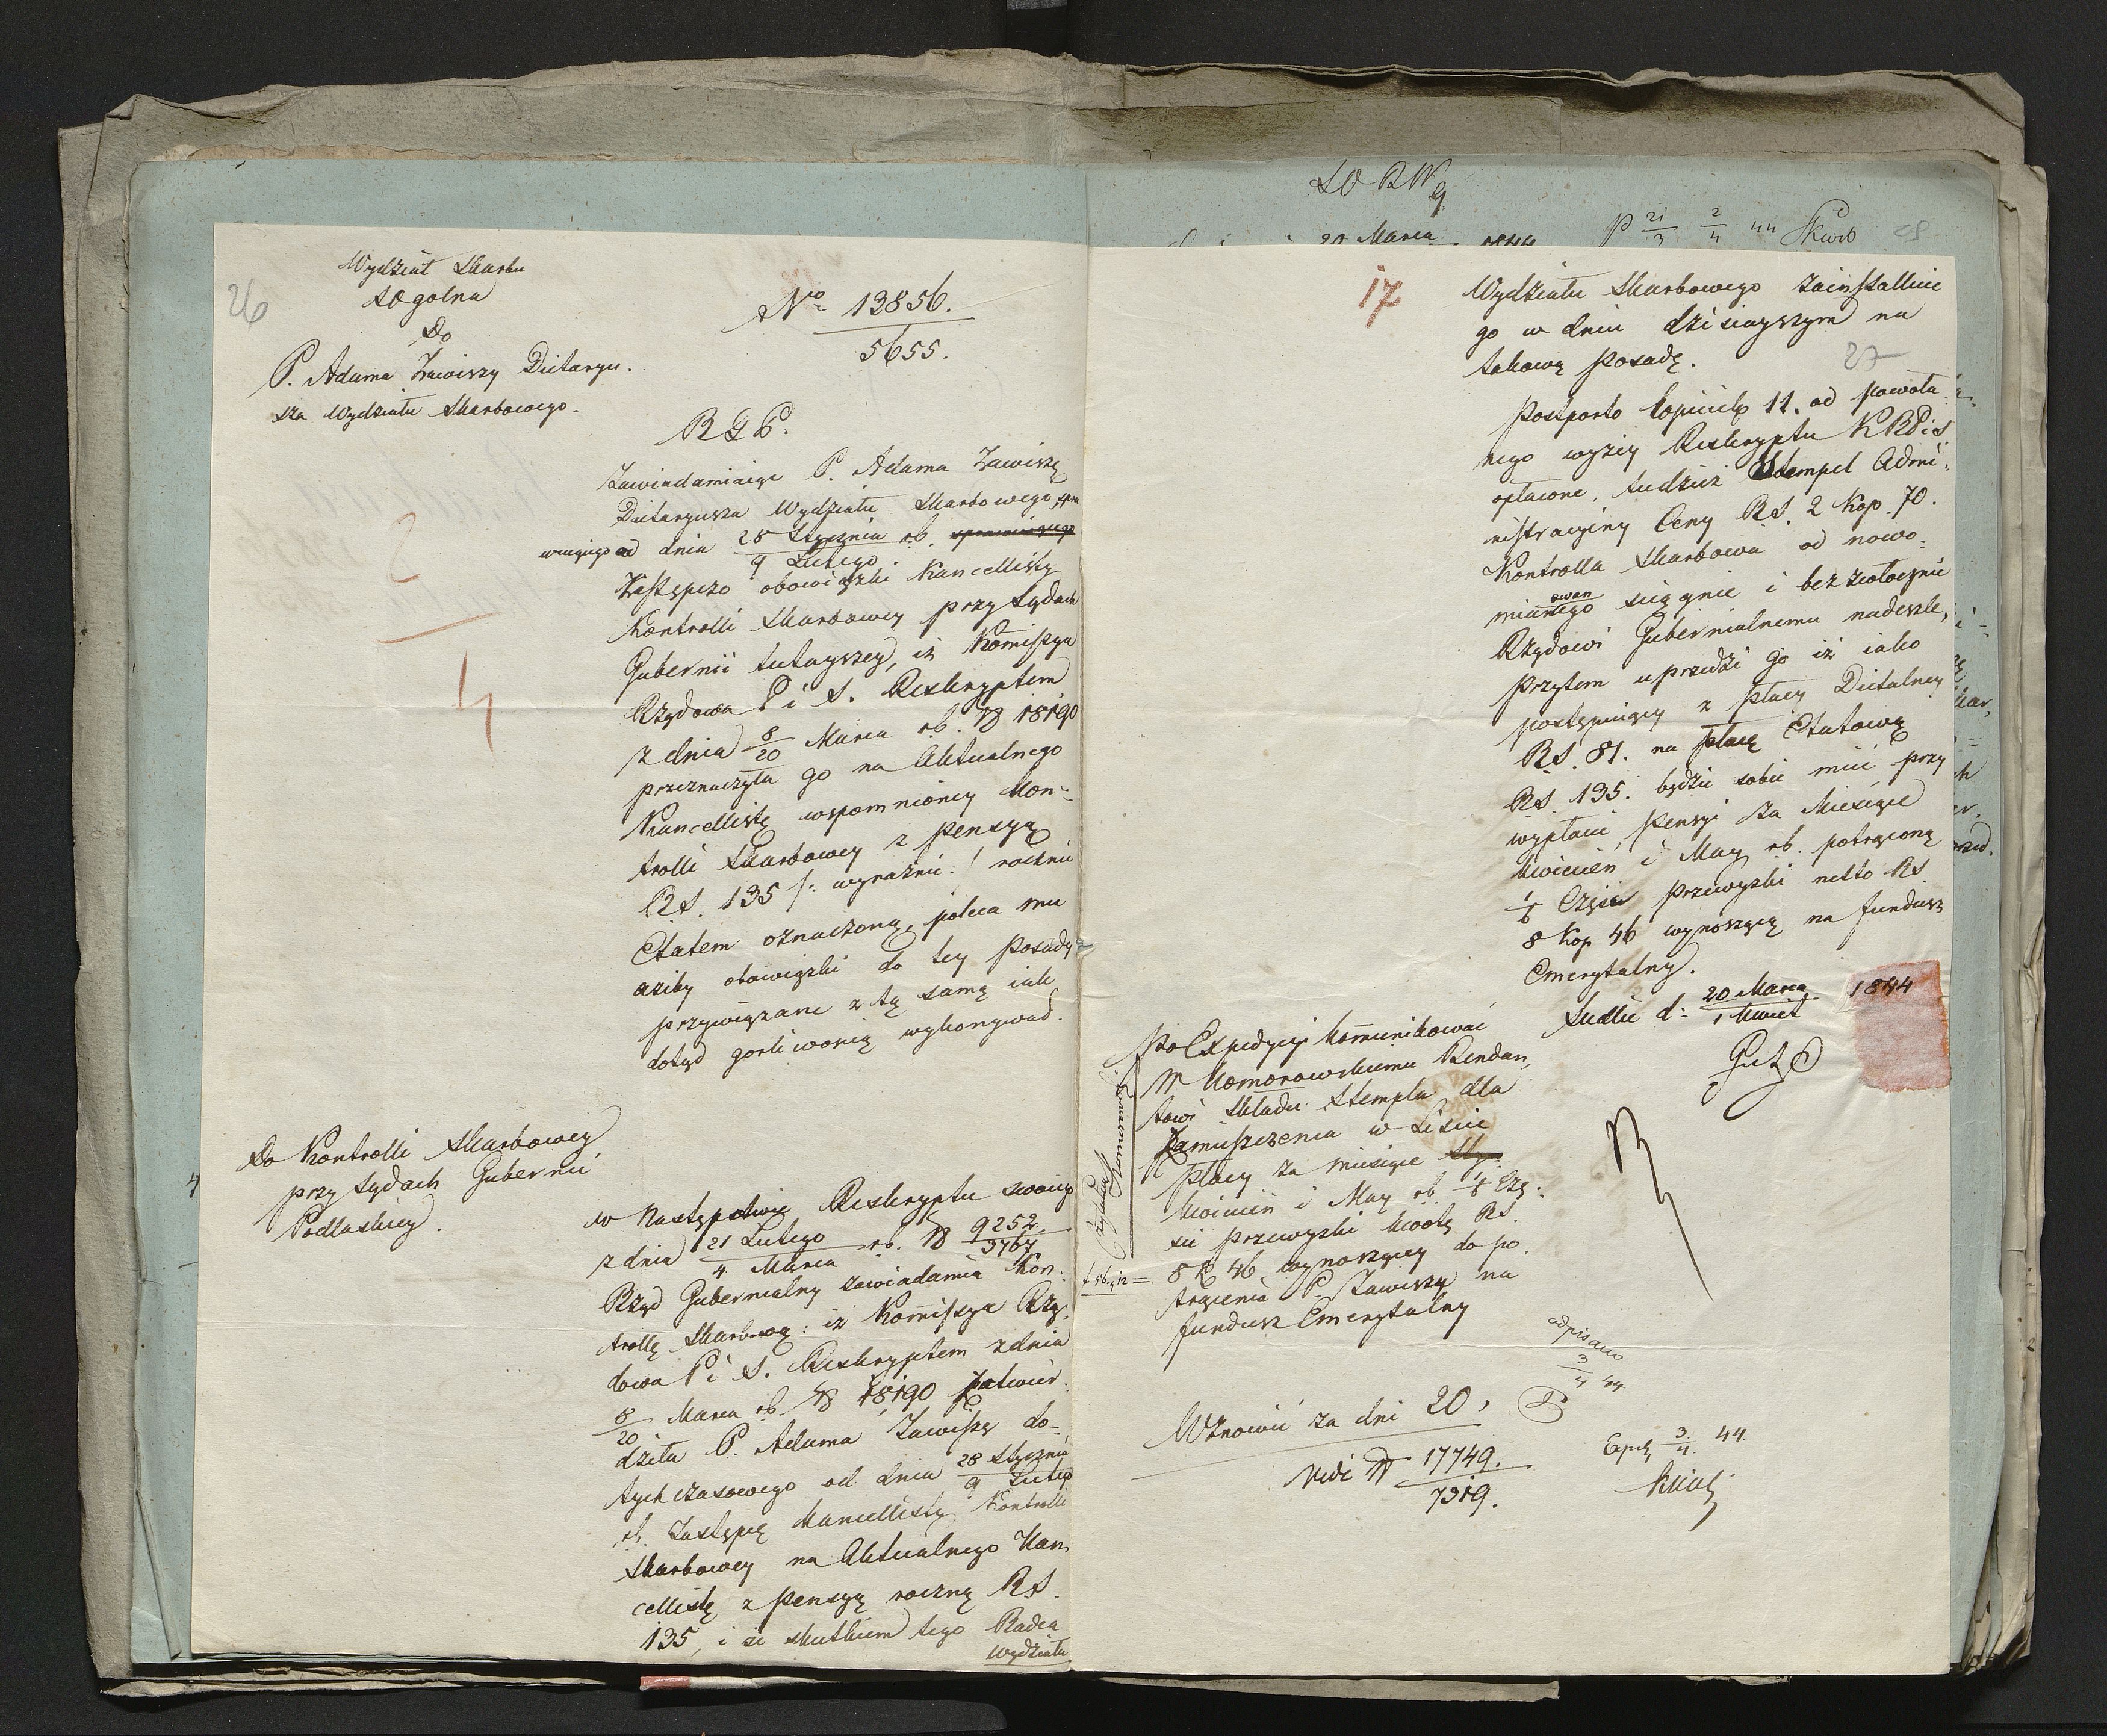 26
Wydział Skarbu
S Ogólna
Do
P. Adama Zawiszy Dietaryu.
sza Wydziału Skarbowego.
Nro 13856.
5655.
R G P.
Zawiadamiaiąc P. Adama Zawiszę
Dietaryusza Wydziału Skarbowego, spra
wuiącego od dnia 28 Stycznia / 9 Lutego rb.
Zastępczo obowiązki Kancellisty
Kontrolli Skarbowey przy Sądach
Gubernii tutayszey, iż Kommissya
Rządowa P i S. Reskryptem
z dnia 8/20 Marca rb. N 18190
przeznaczyła go na Aktualnego
Kancellistę wspomnioney Kon-
trolli Skarbowey z pensyą
R.S. 135 /: wyraźnie :/ rocznie
Etatem oznaczoną, poleca mu
ażeby obowiązki do tey posady
przywiązane z tą samą iak
dotąd gorliwością wykonywał.
2
4
Do Kontrolli Skarbowey
przy Sądach Gubernii
Podlaskiey.
W Następstwie Reskryptu swoiego
z dnia 21 Lutego / 4 Marca rb. N 9252 / 3767
Rząd Gubernialny zawiadamia Kon-
trollę Skarbową: iż Kommissya Rzą-
dowa P i S. Reskryptem z dnia
8/20 Marca rb. N 18190 zatwier-
dziła P. Adama Zawiszę do-
tychczasowego od dnia 28 Stycznia / 9 Lutego
rb. Zastępcę Kancellisty Kontrolli
Skarbowey na Aktualnego Kan
cellistę z pensyą roczną RS.
135, i że skutkiem tego Radca
Wydziału
20 Marca
P 21/3 2/4 44
17
27
Wydziału Skarbowego zainstalluie
go w dniu dzisieyszym na
takową posadę.
Postporto kopieiek 11. od powoła-
nego wyżey Reskryptu KRPiS
opłacone, tudzież Stempel Admi-
nistracyiny Ceny RS. 2 Kop. 70.
Kontrolla Skarbowa od nowo-
mianowanego ściągnie i bezzwłocznie
Rządowi Gubernialnemu nadeszle,
przytem uprzedzi go iż iako
postępuiący z płacy Dietalney
RS. 81. na płacę Etatową
RS. 135. będzie sobie mieć przy
wypłacie pensyi za Miesiące
Kwiecień i May rb. potrąconą
1/6 Część przewyżki netto RS
8 Kop 46 wynoszącą na fundusz
Emerytalny.
Siedlce d: 20 Marca / 1 Kwiet 1844
Po Expedycyi kommunikować
W Komorowskiemu Rendan-
towi Składu Stempla dla
zamieszczenia w Liście
Płacy za miesiące
Kwiecień i May rb. 1/6 Czę-
ści przewyżki kwotę RS.
8 K 46 wynoszącey do po-
trącenia P. Zawiszy na
fundusz Emerytalny
Czytałem
Komorowski
odpisano
3/4 44
Wznowić za dni 20,
vidi N 17749.
7319.
Exped 3/4. 44.